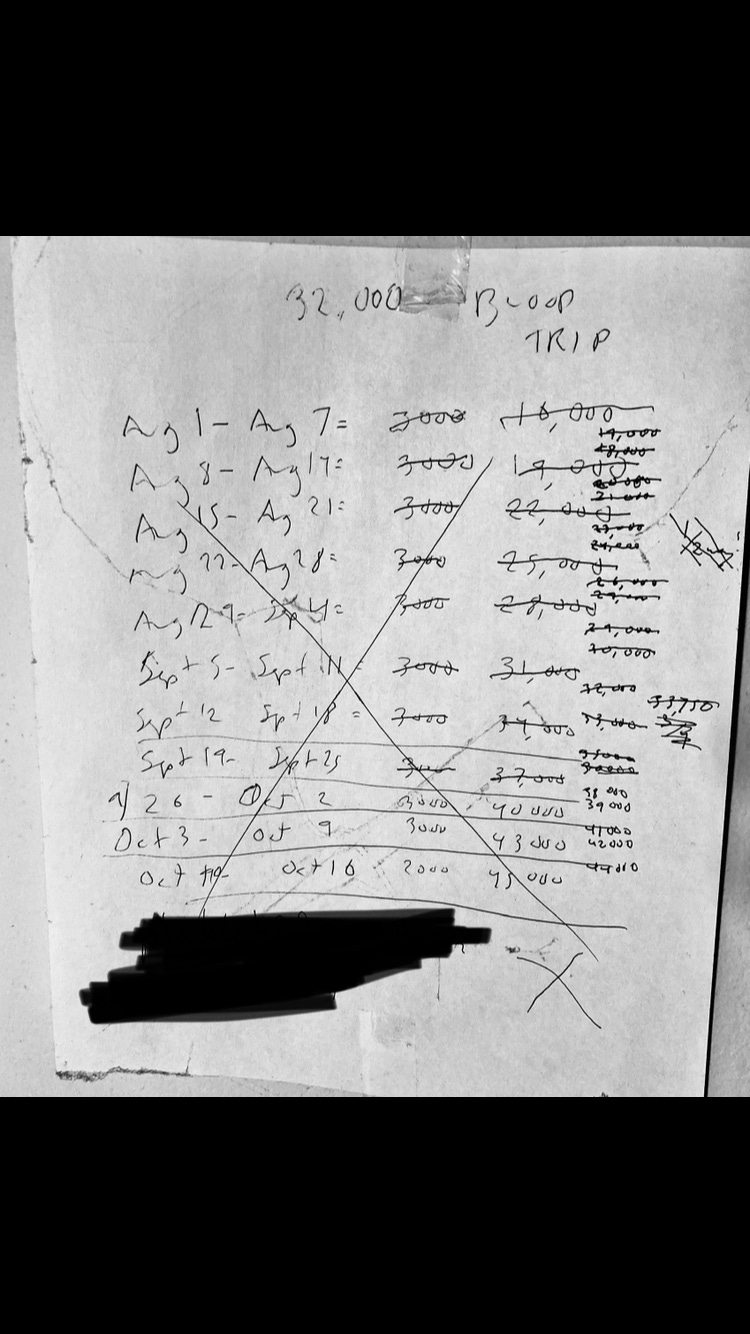 32,000 BLOOD
TRIP
Aug 1 - Aug 7 = 3000 16,000
19,000
18,000
Aug 8 - Aug 17 = 3000 19,000
21,000
Aug 15 - Ag 21 = 3000 22,000
23,000
24,000
Aug 22 - Aug 28 = 3000 25,000
26,000
Aug 29 - Sep 4 = 3000 28,000
29,000
30,000
Sept 5 - Sept 11 = 3000 31,000
32,000
33,750
Sept 12 Sept 18 = 3000 34,000 33,000
35000
Sept 19 - Sept 25 3000 37,000
38 000
9/26 - Oct 2 3000 40 000 39 000
41000
Oct 3 - Oct 9 3000 43 000 42000
44000
Oct - Oct 16 2000 45 000